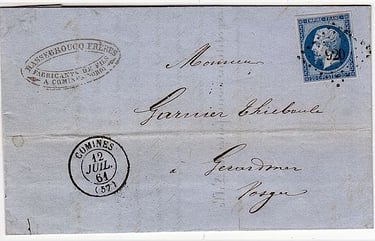 HASSEBROUCQ FRÈRES
FABRICANTS DE FIL
A COMINES (NORD)
EMPIRE FRANC.
Monsieur
Garnier Thiebaule
à Gerardmer
Vosges
COMINES
12
JUIL.
61
(57)